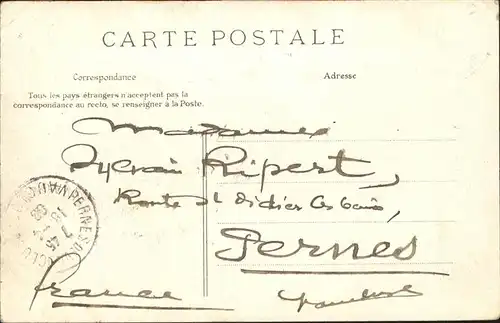 CARTE POSTALE
Correspondance
Adresse
Tous les pays étrangers n'acceptent pas la
correspondance au recto, se renseigner à la Poste.
Madame
Sylvain Ripert,
Route St Didier les bains,
Pernes
France
Vaucluse
PERNES